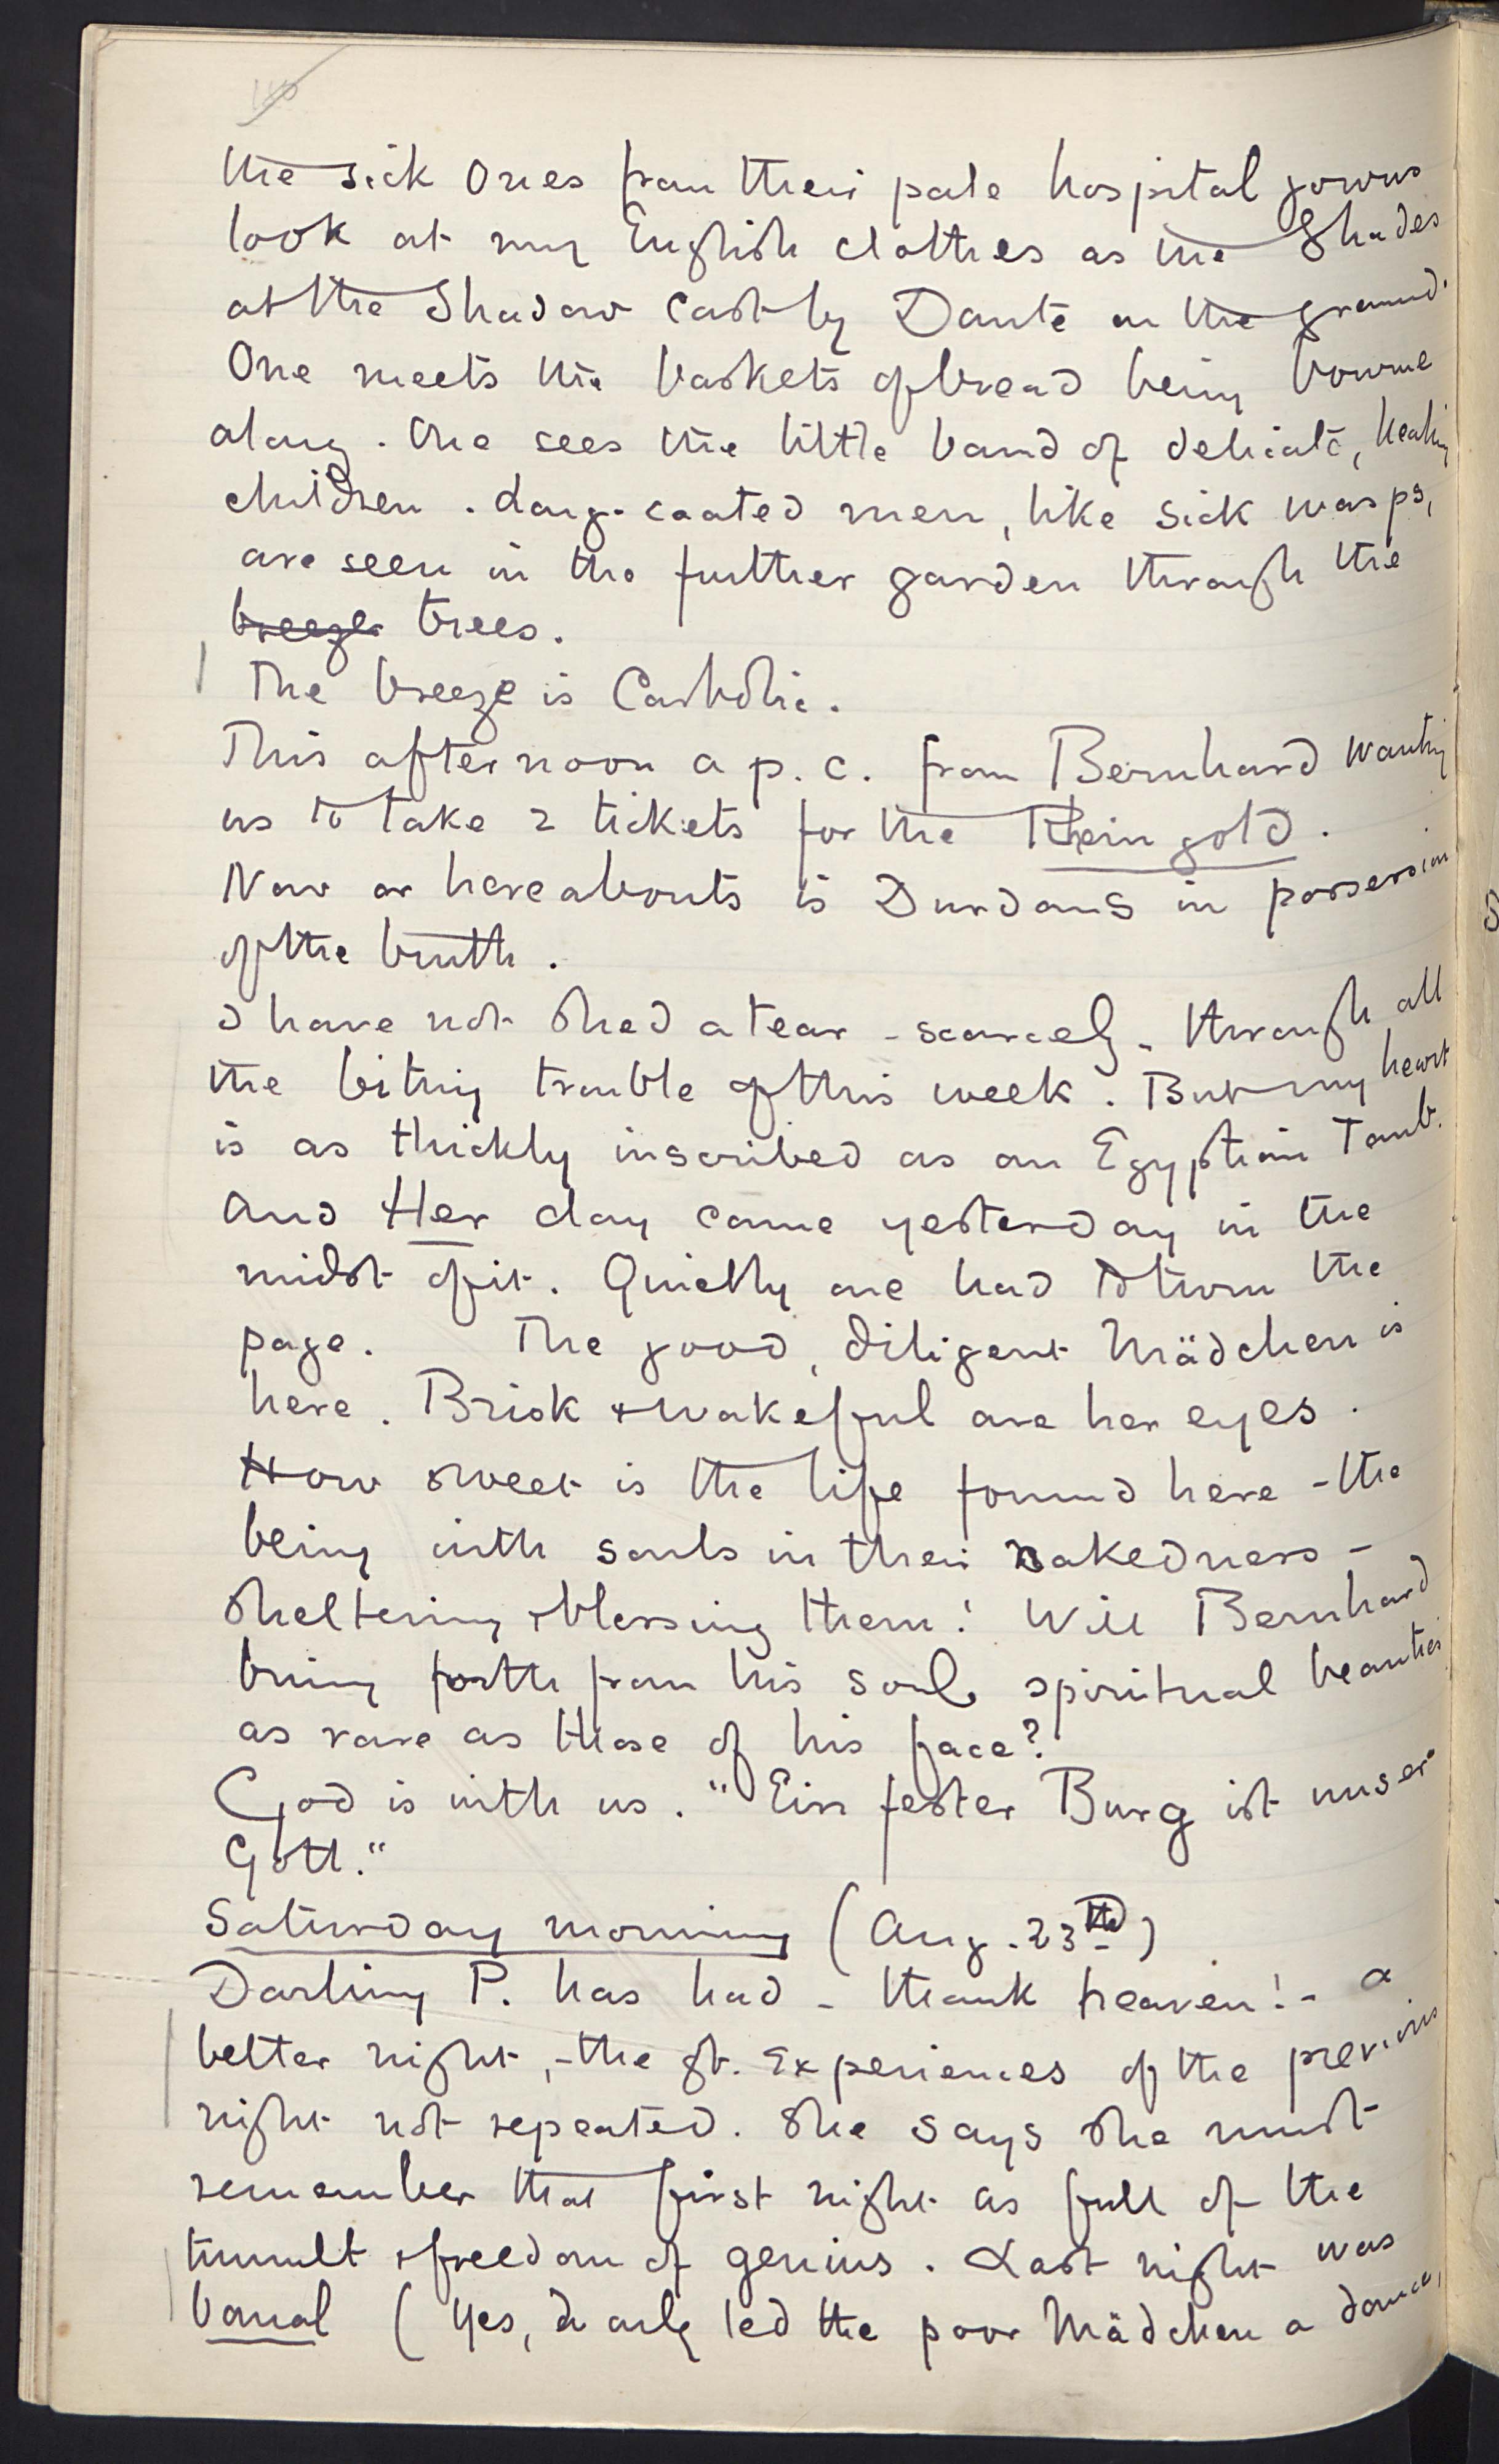 the sick ones from their pale hospital gowns
look at my English clothes as the Shades
at the Shadow cast by Dante on the ground.
One meets the baskets of bread being bourne
along. One sees the little band of delicate, healing
children. Long-coated men, like sick wasps,
are seen in the further garden through the
breeze trees.
The breeze is Carbolic.
This afternoon a p.c. from Bernhard wanting
us to take 2 tickets for the Rheingold.
Now or hereabouts is Durdans in possession
of the truth.
I have not shed a tear - scarcely - through all
the biting trouble of this week. But my heart
is as thickly inscribed as an Egyptian Tomb.
And Her day came yesterday in the
midst of it. Quietly one had to turn the
page. The good, diligent Mädchen is
here. Brisk & wakeful are her eyes.
How sweet is the life found here - the
being with souls in their nakedness -
sheltering & blessing them! Will Bernhard
bring forth from his soul spiritual beauties
as rare as those of his face?
God is with us. "Ein fester Burg ist unser
Gott."
Saturday morning (Aug. 23rd)
Darling P. has had - thank heaven! - a
better night, - the gt. experiences of the previous
night not repeated. She says she must
remember that first night as full of the
tumult & freedom of genius. Last night was
banal (Yes, I only led the poor Mädchen a dance,